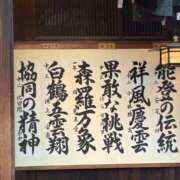 能登の伝統
祥風慶雲
果敢な挑戦
森羅万象
白鶴雲翔
協同の精神